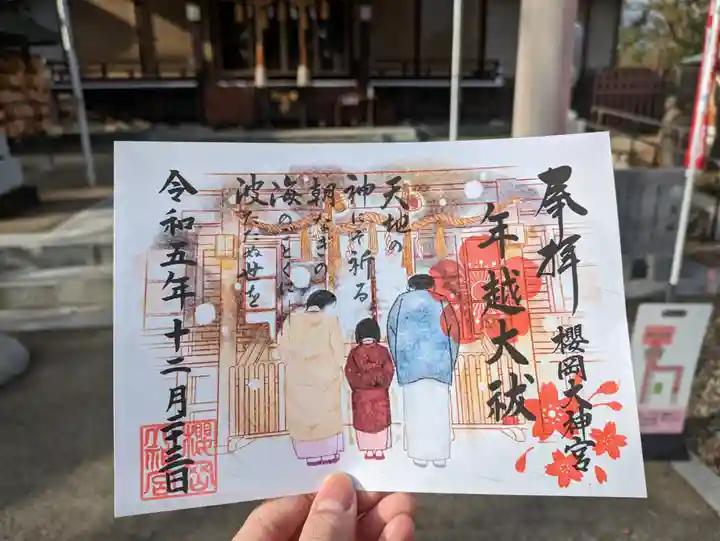 奉拝
年越大祓
櫻岡大神宮
天地の
神にぞ祈る
朝なぎの
海のごとくに
波たゝぬ世を
令和五年十二月二十三日